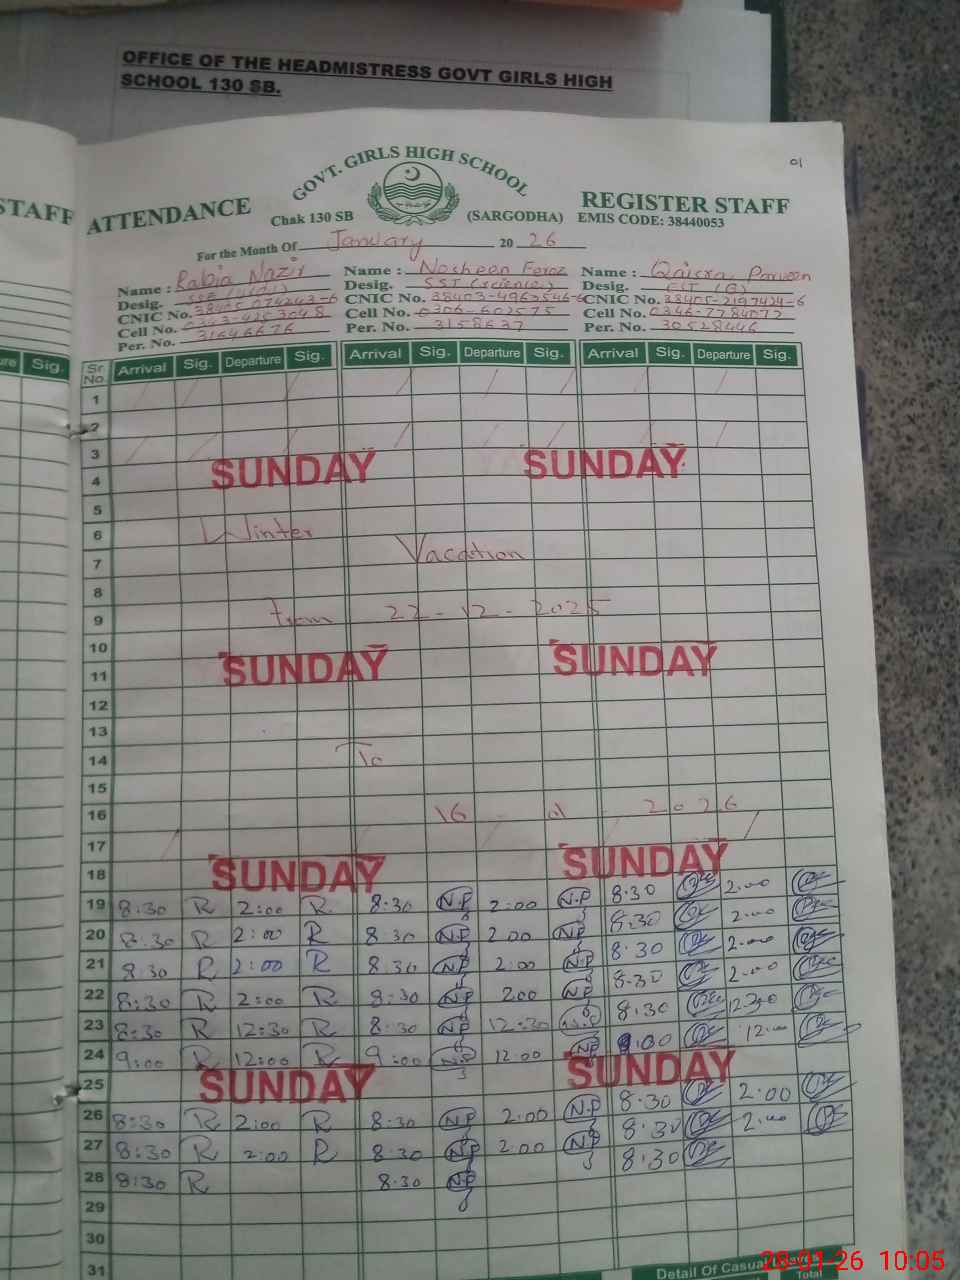 OFFICE OF THE HEADMISTRESS GOVT GIRLS HIGH
SCHOOL 130 SB.
01
GOVT. GIRLS HIGH SCHOOL
STAFF ATTENDANCE REGISTER STAFF
Chak 130 SB (SARGODHA) EMIS CODE: 38440053
For the Month Of January 20 26
Name : Rabia Nazir Name : Nosheen Feroz Name : Qaisra Parveen
Desig. Desig. SST (science) Desig. EST (G)
CNIC No. CNIC No. CNIC No. 38405-2197424-6
Cell No. Cell No. Cell No. 0346-7784077
Per. No. 31646676 Per. No. 3158637 Per. No. 30528446
Sig. Sr. No. Arrival Sig. Departure Sig. Arrival Sig. Departure Sig. Arrival Sig. Departure Sig.
1
2
3
4 SUNDAY SUNDAY
5
6 Winter
7 Vacation
8
9 From 22-12-2025
10
11 SUNDAY SUNDAY
12
13
14 To
15
16 16 - 01 - 2026
17
18 SUNDAY SUNDAY
19 8:30 R 2:00 R 8:30 N.P 2:00 N.P 8:30 2:00
20 8:30 R 2:00 R 8:30 N.P 2:00 N.P 8:30 2:00
21 8:30 R 2:00 R 8:30 N.P 2:00 N.P 8:30 2:00
22 8:30 R 2:00 R 8:30 N.P 2:00 N.P 8:30 2:00
23 8:30 R 12:30 R 8:30 N.P 12:30 N.P 8:30 12:30
24 9:00 R 12:00 R 9:00 N.P 12:00 N.P 9:00 12:00
25 SUNDAY SUNDAY
26 8:30 R 2:00 R 8:30 N.P 2:00 N.P 8:30 2:00
27 8:30 R 2:00 R 8:30 N.P 2:00 N.P 8:30 2:00
28 8:30 R 8:30 N.P 8:30
29
30
31
Detail Of Casual Leaves
Total
28-01-26 10:05